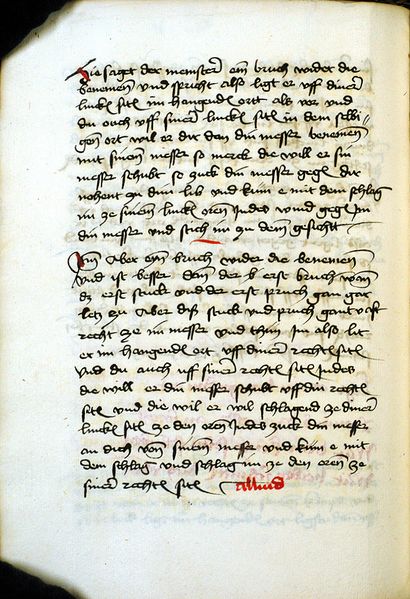 Hie saget der meinster ein bruch wider die
benemen vnd spricht also ligt er vff diner
lincken siten im hangenden ortt als vor vnd
du ouch vff siner lincken siten in dem selbi-
gen ort wil er dir dan din messer benemen
mit sinem messer so merck die will er sin
messer schubt so zuck din messer gegen dir
nohent zu dim lib vnd kum e mit dem schlag
im ze sinem lincken oren Indes wind gegen Im
din messer vnd stich im zu dem gesicht
Aber ein bruch wider die benemen
vnd ist besser dann der erst bruch wann
dz erst stuck vnd der erst pruch gan gar
letz zu Aber diß stuck vnd pruch gant vff
recht ze im messer vnd thun Im also lit
er im hangenden ort vff diner rechten siten
vnd du auch vff siner rechten siten Indes
die will er din messer schubt vff din rechten
siten vnd die wil er wil schlagend ze diner
lincken siten ze den oren Indes zuck din messer
an dich von sinem messer vnd kum e mit
dem schlag vnd schlag im ze den oren ze
siner rechten siten